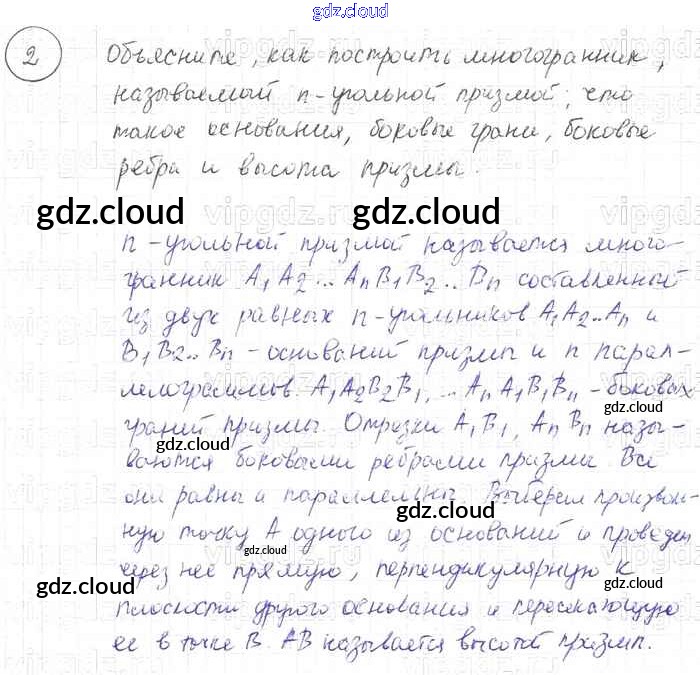 gdz.cloud
2 Объясните, как построить многогранник,
называемый n-угольной призмой; что
такое основания, боковые грани, боковые
ребра и высота призмы.
gdz.cloud gdz.cloud
n-угольной призмой называется много-
гранник A₁A₂...AnB₁B₂..Bn составленный
из двух равных n-угольников A₁A₂..An и
B₁B₂..Bn - оснований призмы и n парал-
лелограммов. A₁A₂B₂B₁, ... AnA₁B₁Bn - боковых
граней призмы. Отрезки A₁B₁, AnBn назы-
gdz.cloud gdz.cloud
ваются боковыми ребрами призмы. Все
они равны и параллельны. Выберем произволь-
gdz.cloud
ную точку A одного из оснований и проведем
gdz.cloud
через нее прямую, перпендикулярную к
gdz.cloud gdz.cloud
плоскости другого основания и пересекающую
ее в точке B. AB называется высотой призмы.